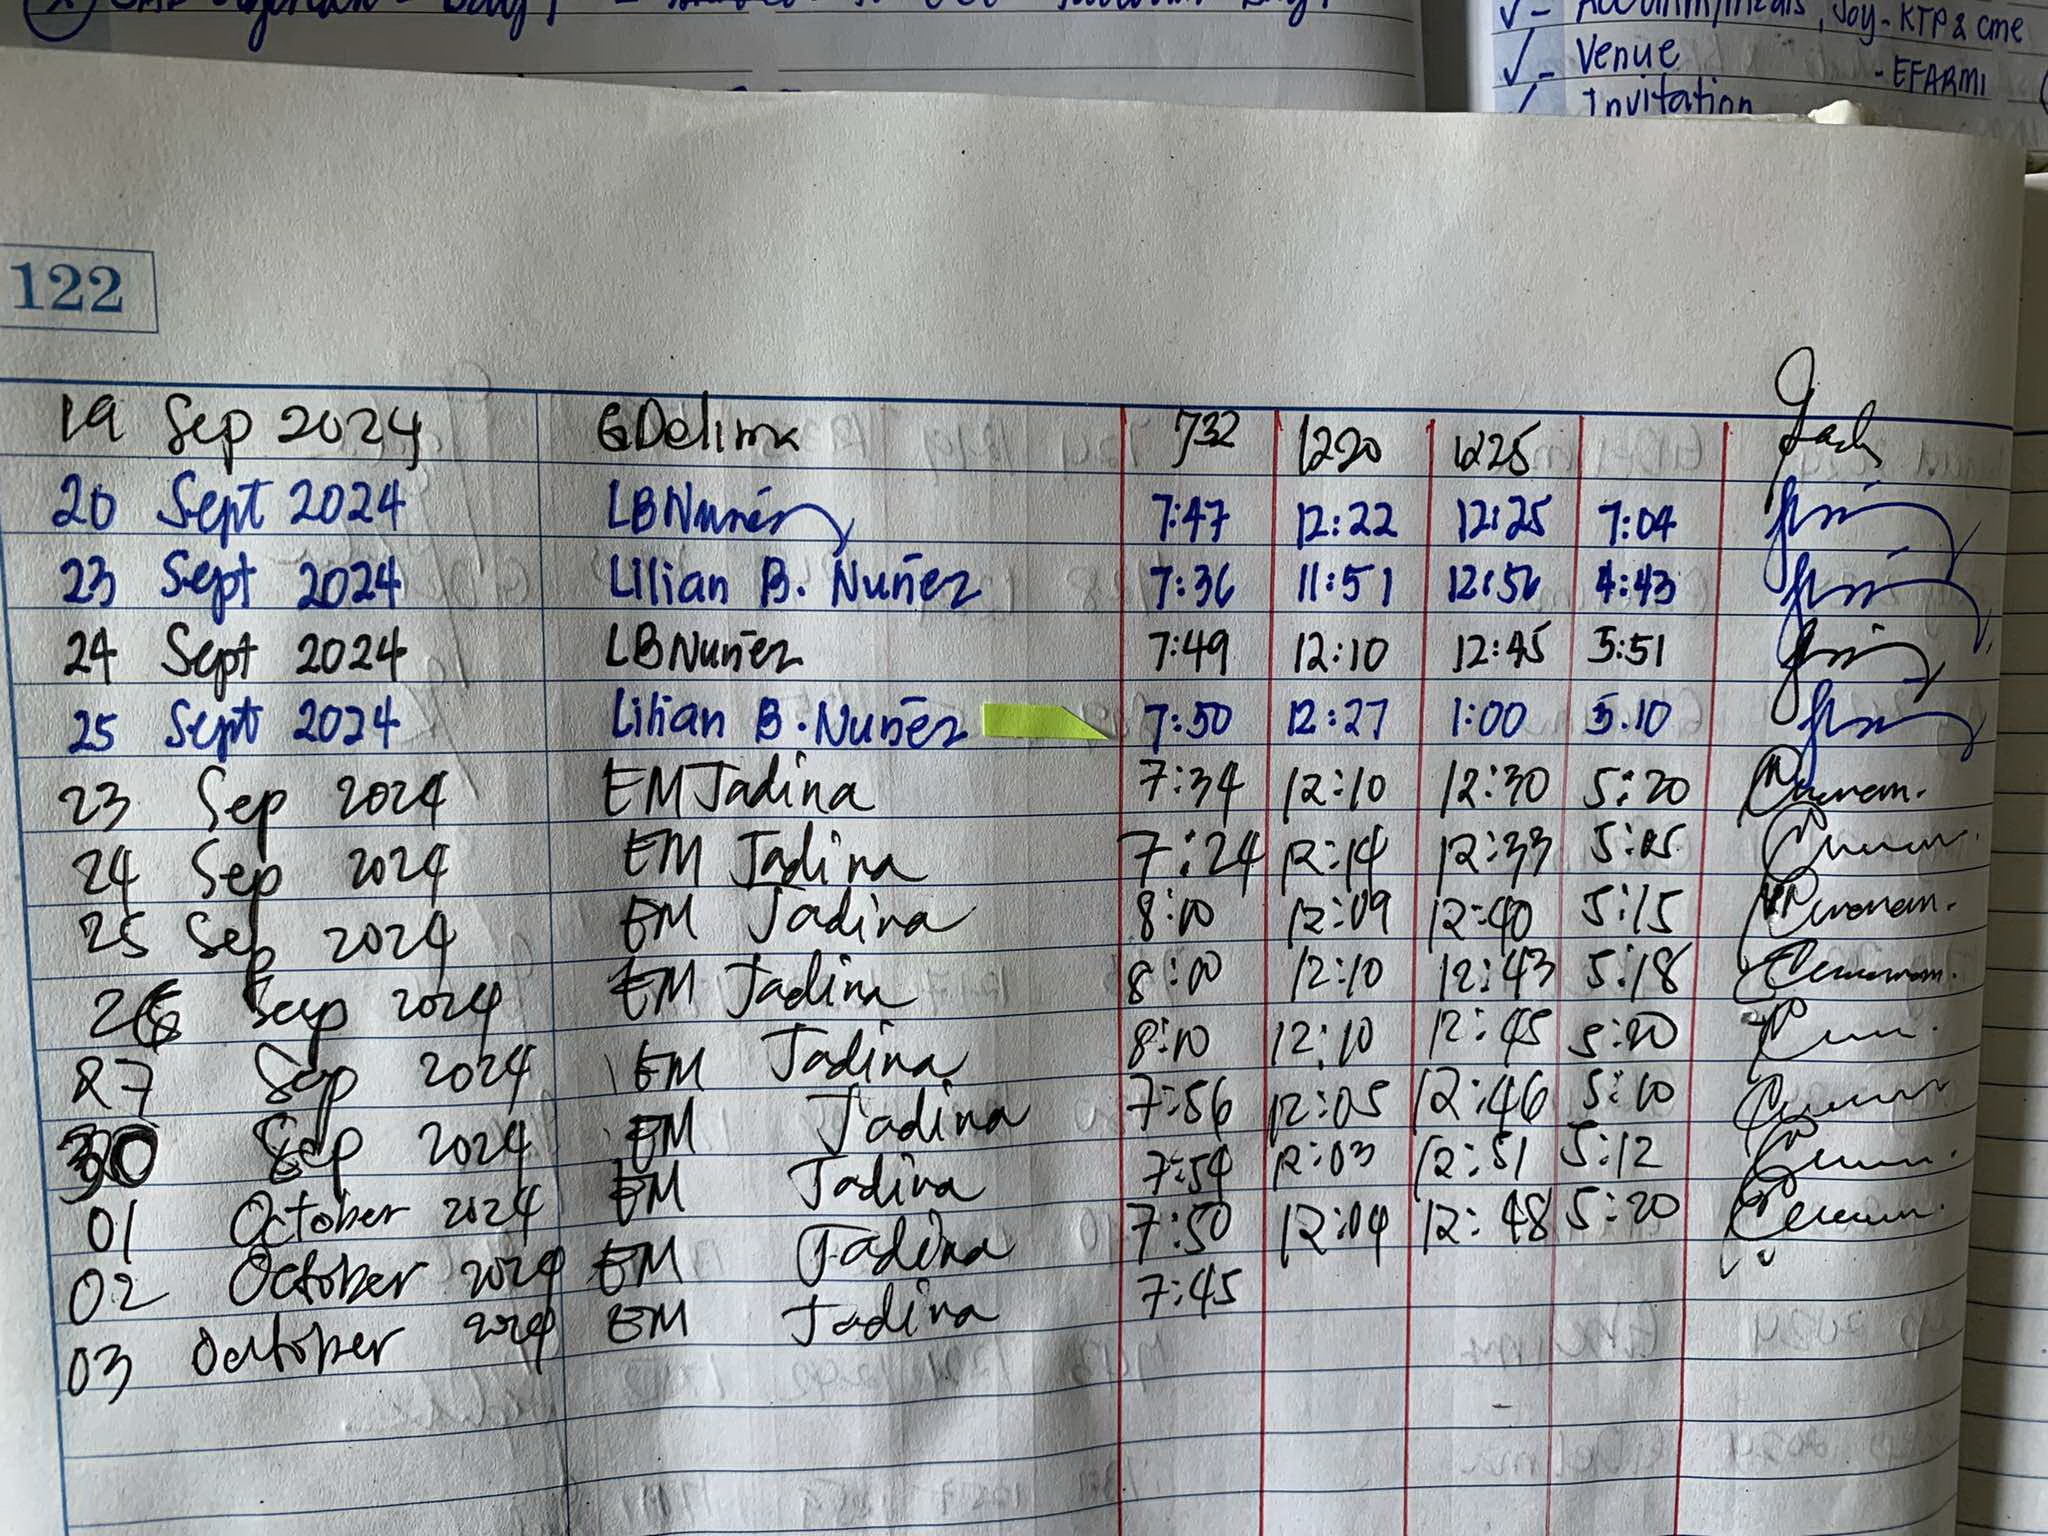 Venue
- EFARMI
Joy - KTP & CME
Invitation
122
19 Sep 2024 GDelima 732 1220 1225
20 Sept 2024 LBNuñez 7:47 12:22 12:25 7:04
23 Sept 2024 Lilian B. Nuñez 7:36 11:51 12:56 4:43
24 Sept 2024 LBNuñez 7:49 12:10 12:45 5:51
25 Sept 2024 Lilian B. Nuñez 7:50 12:27 1:00 5.10
23 Sep 2024 EMJadina 7:34 12:10 12:30 5:20
24 Sep 2024 EM Jadina 7:24 12:14 12:33 5:05
25 Sep 2024 EM Jadina 8:10 12:09 12:40 5:15
26 Sep 2024 EM Jadina 8:00 12:10 12:43 5:18
27 Sep 2024 EM Jadina 8:10 12:10 12:45 5:20
30 Sep 2024 EM Jadina 7:56 12:05 12:46 5:10
01 October 2024 EM Jadina 7:54 12:03 12:51 5:12
02 October 2024 EM Jadina 7:50 12:04 12:48 5:20
03 October 2024 EM Jadina 7:45